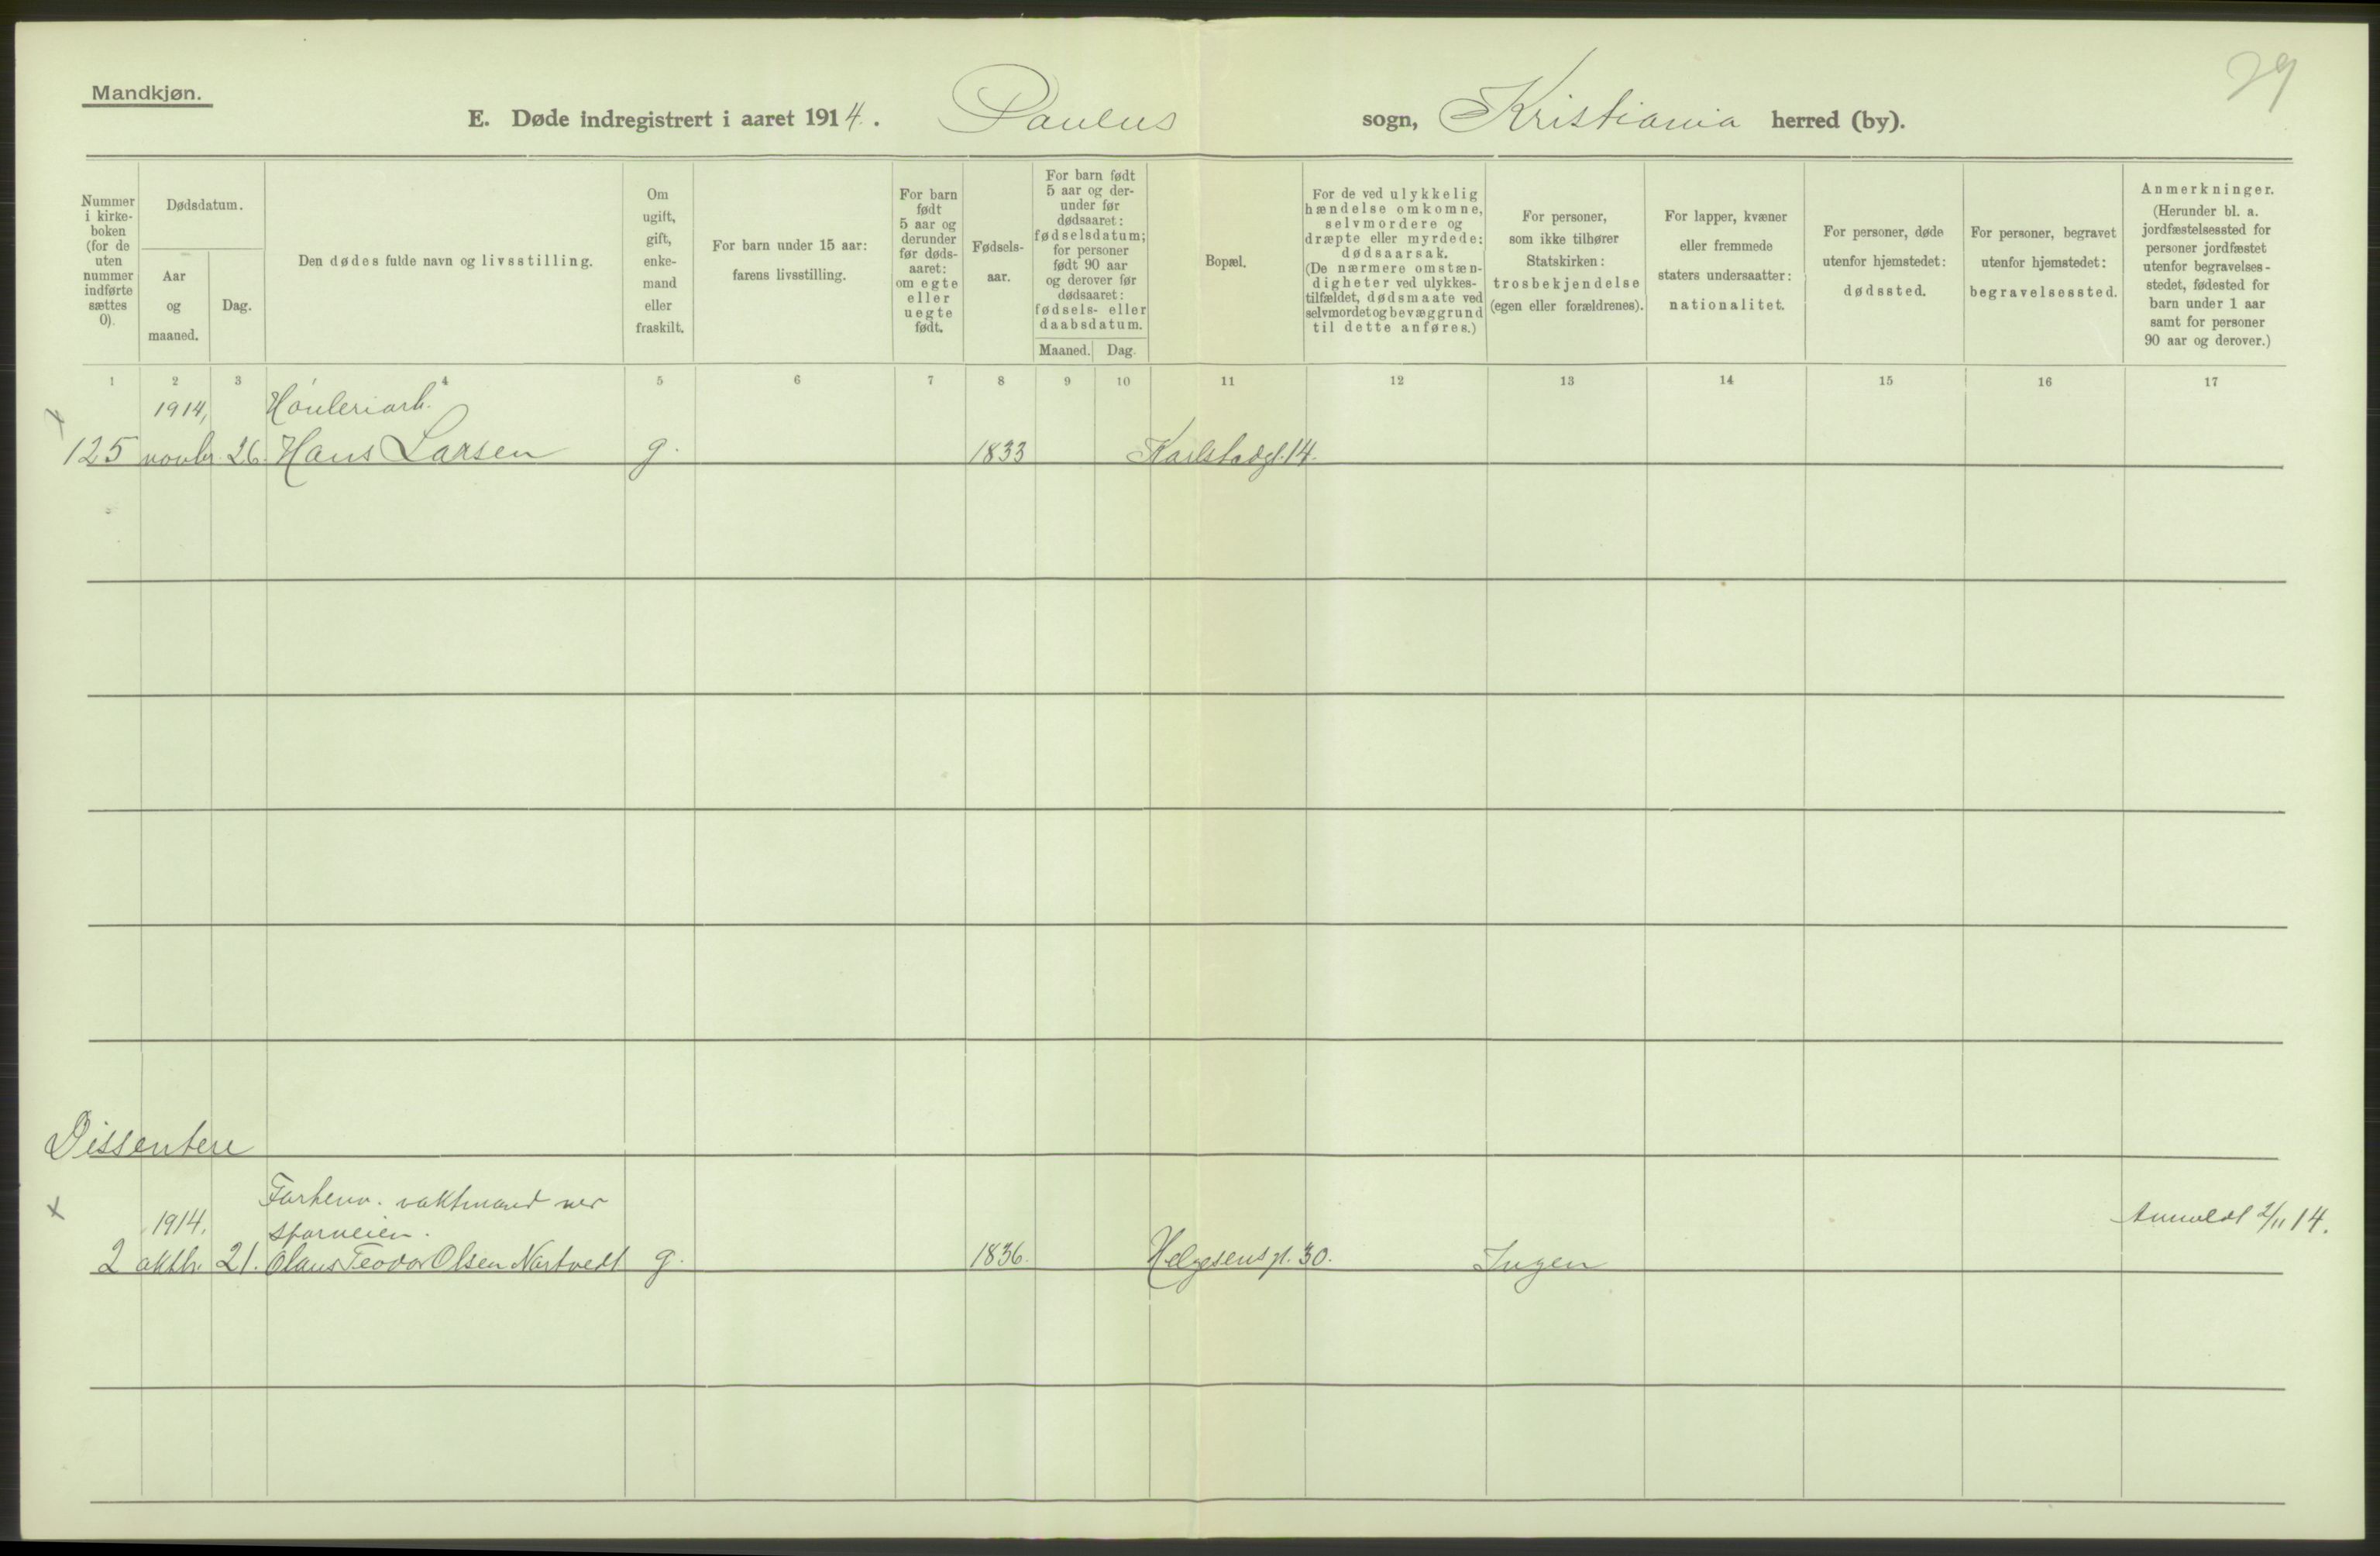 29
Mandkjøn.
E. Døde indregistrert i aaret 1914. Paulus sogn, Kristiania herred (by).
Nummer i kirke-boken (for de uten nummer indførte sættes 0).
Dødsdatum.
Aar og maaned.
Dag.
Den dødes fulde navn og livsstilling.
Om ugift, gift, enke-mand eller fraskilt.
For barn under 15 aar: farens livsstilling.
For barn født 5 aar og derunder før døds-aaret: om egte eller uegte født.
Fødsels-aar.
For barn født 5 aar og der-under før dødsaaret: fødselsdatum; for personer født 90 aar og derover før dødsaaret: fødsels- eller daabsdatum.
Maaned. Dag.
Bopæl.
For de ved ulykkelig hændelse omkomne, selvmordere og dræpte eller myrdede: dødsaarsak. (De nærmere omstæn-digheter ved ulykkes-tilfældet, dødsmaate ved selvmordet og bevæggrund til dette anføres.)
For personer, som ikke tilhører Statskirken: trosbekjendelse (egen eller forældrenes).
For lapper, kvæner eller fremmede staters undersaatter: nationalitet.
For personer, døde utenfor hjemstedet: dødssted.
For personer, begravet utenfor hjemstedet: begravelsessted.
Anmerkninger. (Herunder bl. a. jordfæstelsessted for personer jordfæstet utenfor begravelses-stedet, fødested for barn under 1 aar samt for personer 90 aar og derover.)
1 2 3 4 5 6 7 8 9 10 11 12 13 14 15 16 17
1914,
125 novbr. 26. Hans Larsen g. 1833 Karlstadgt. 14.
Dissentere
x Forhenv. vaktmand ver
1914. sporveien. Anmeldt 2/11 14.
2 oktbr. 21. Olaus Teodor Olsen Nartvedt g. 1836. Helgesensgt. 30. Ingen